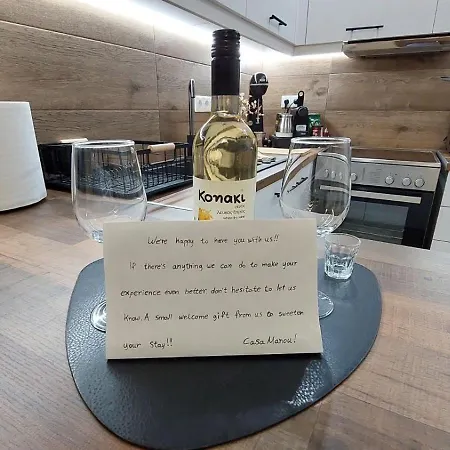 Κοπακι
We're happy to have you with us!!
If there's anything we can do to make your
experience even better don't hesitate to let us
know. A small welcome gift from us to sweeten
your stay!!    Casa Manou!